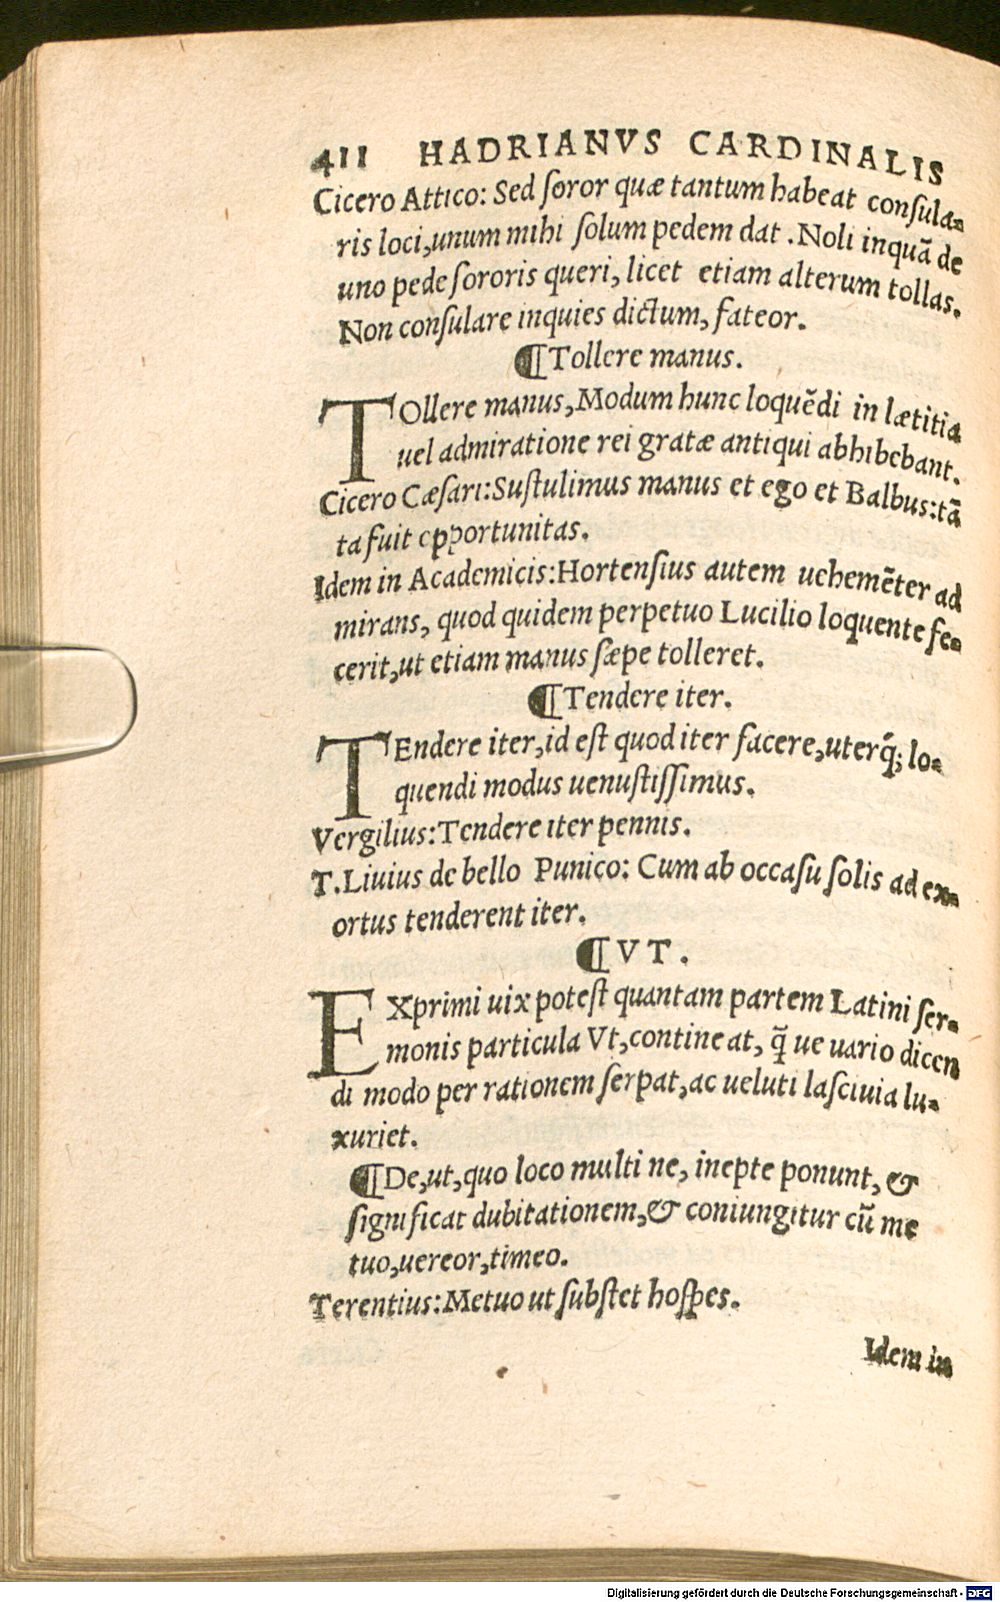 411 HADRIANVS CARDINALIS
Cicero Attico: Sed ſoror quæ tantum habeat conſula-
ris loci,unum mihi ſolum pedem dat .Noli inquā de
uno pede ſororis queri, licet etiam alterum tollas.
Non conſulare inquies dictum, fateor.
¶Tollere manus.
TOllere manus,Modum hunc loquēdi in lætitia
uel admiratione rei gratæ antiqui abhibebant.
Cicero Cæſari:Suſtulimus manus et ego et Balbus:tā
ta fuit opportunitas.
Idem in Academicis:Hortenſius autem uehemēter ad
mirans, quod quidem perpetuo Lucilio loquente fe-
cerit,ut etiam manus ſæpe tolleret.
¶Tendere iter.
TEndere iter,id eſt quod iter facere,uterq̃; lo-
quendi modus uenuſtiſſimus.
Vergilius:Tendere iter pennis.
T.Liuius de bello Punico: Cum ab occaſu ſolis ad ex-
ortus tenderent iter.
¶VT.
EXprimi uix poteſt quantam partem Latini ſer-
monis particula Vt,contineat, q̃ ue uario dicen
di modo per rationem ſerpat,ac ueluti laſciuia lu-
xuriet.
¶De,ut,quo loco multi ne, inepte ponunt, &
ſignificat dubitationem,& coniungitur cū me
tuo,uereor,timeo.
Terentius:Metuo ut ſubſtet hoſpes.
Idem in
Digitalisierung gefördert durch die Deutsche Forschungsgemeinschaft - DFG